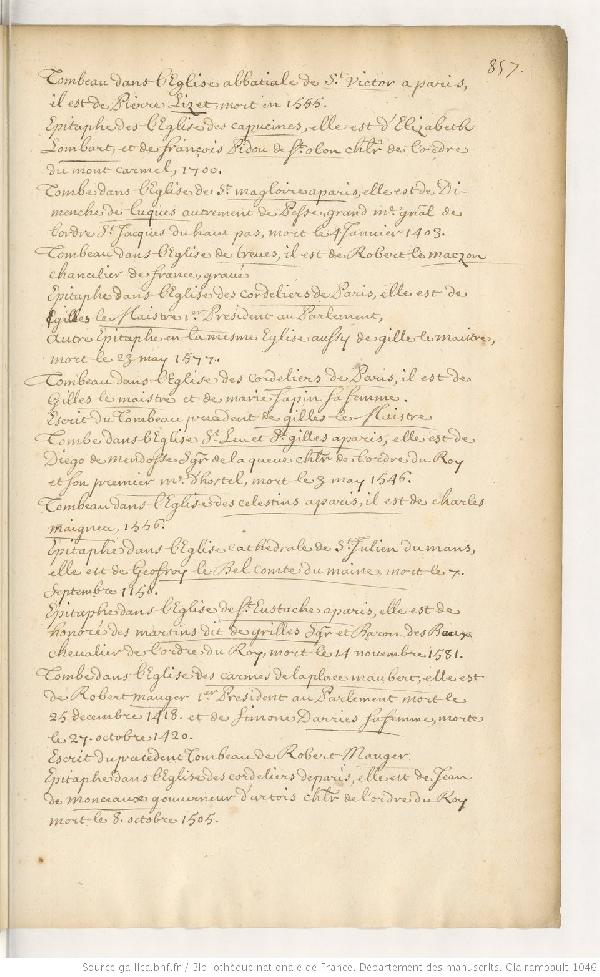 857.
Tombeau dans l'Eglise abbatiale de St. Victor a paris,
il est de Pierre Lizet, mort en 1555.
Epitaphe des l'Eglise des capucines, elle est d'Elizabeth
Lombart, et de françois Pidou de St. olon chlr. de l'ordre
du mont carmel, 1700.
Tombe dans l'Eglise de St. magloire a paris, elle est de Di-
menche de Luques autrement de Posse, grand mre. gnal de
l'ordre St. Jacques du haut pas, mort le 4 Janvier 1403.
Tombeau dans l'Eglise de treues, il est de Robert le maczon
chancalier de france, gravé
Epitaphe dans l'Eglise des cordeliers de Paris, elle est de
gilles le Maistre 1er President au Parlement,
autre Epitaphe en la mesme Eglise aussy de gille le maitre,
mort le 23 may 1577.
Tombeau dans l'Eglise des Cordeliers de Paris, il est de
Gilles le maistre et de marie sapin sa femme.
Escrit du Tombeau precedent de gilles le Maistre
Tombe dans l'Eglise St. Leu et St. gilles a paris, elle est de
Diego de Mendosse Sgr. de la queue chlr. de l'ordre du Roy
et son premier me. d'hostel, mort le 3 may 1546.
Tombeau dans l'Eglise des celestins a paris, il est de charles
maigneu, 1556.
Epitaphe dans l'Eglise cathedrale de St. Julien du mans,
elle est de Geofroy le Bel comte du maine, mort le 7.
Septembre 1158.
Epitaphe dans l'Eglise de St. Eustache a paris, elle est de
honoré des martins dit de grilles Sgr. et Baron des Baux
chevalier de l'ordre du Roy, mort le 14 novembre 1581.
Tombe dans l'Eglise des carmes de la place maubert, elle est
de Robert mauger 1er President au Parlement mort le
25 decembre 1418. et de Simone Darries sa femme, morte
le 27. octobre 1420.
Escrit du precedent Tombeau de Robert Mauger
Epitaphe dans l'Eglise des cordeliers de paris, elle est de Jean
de monceaux gouverneur d'artois chlr. de l'ordre du Roy
mort le 8. octobre 1505.
Source gallica.bnf.fr / Bibliothèque nationale de France. Département des manuscrits. Clairambault 1046